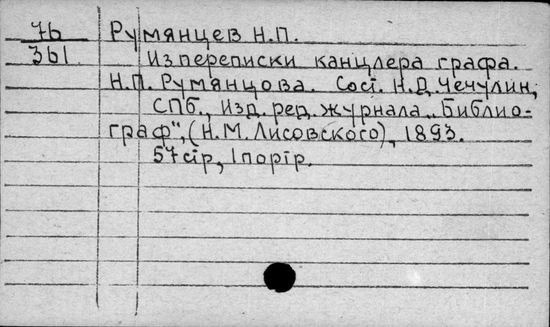 76
361
Румянцев Н.П.
Из переписки канцлера графа.
Н.П. Румянцова. Сост. Н.Д. Чечулин,
СПб., Изд. ред. журнала „Библио-
граф", (Н.М. Лисовского), 1893.
57 стр, 1 портр.